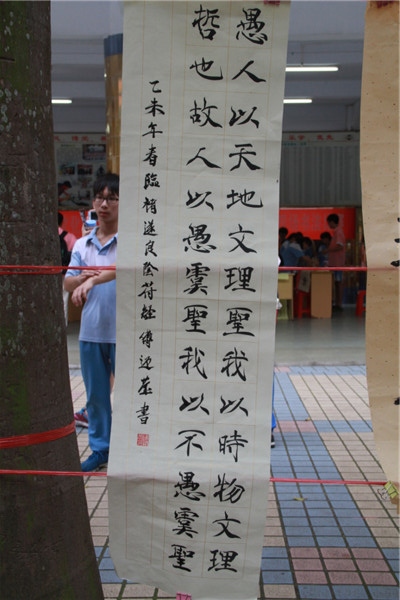 愚人以天地文理聖我以時物文理
哲也故人以愚虞聖我以不愚虞聖
乙未年春臨褚遂良陰符經傅書